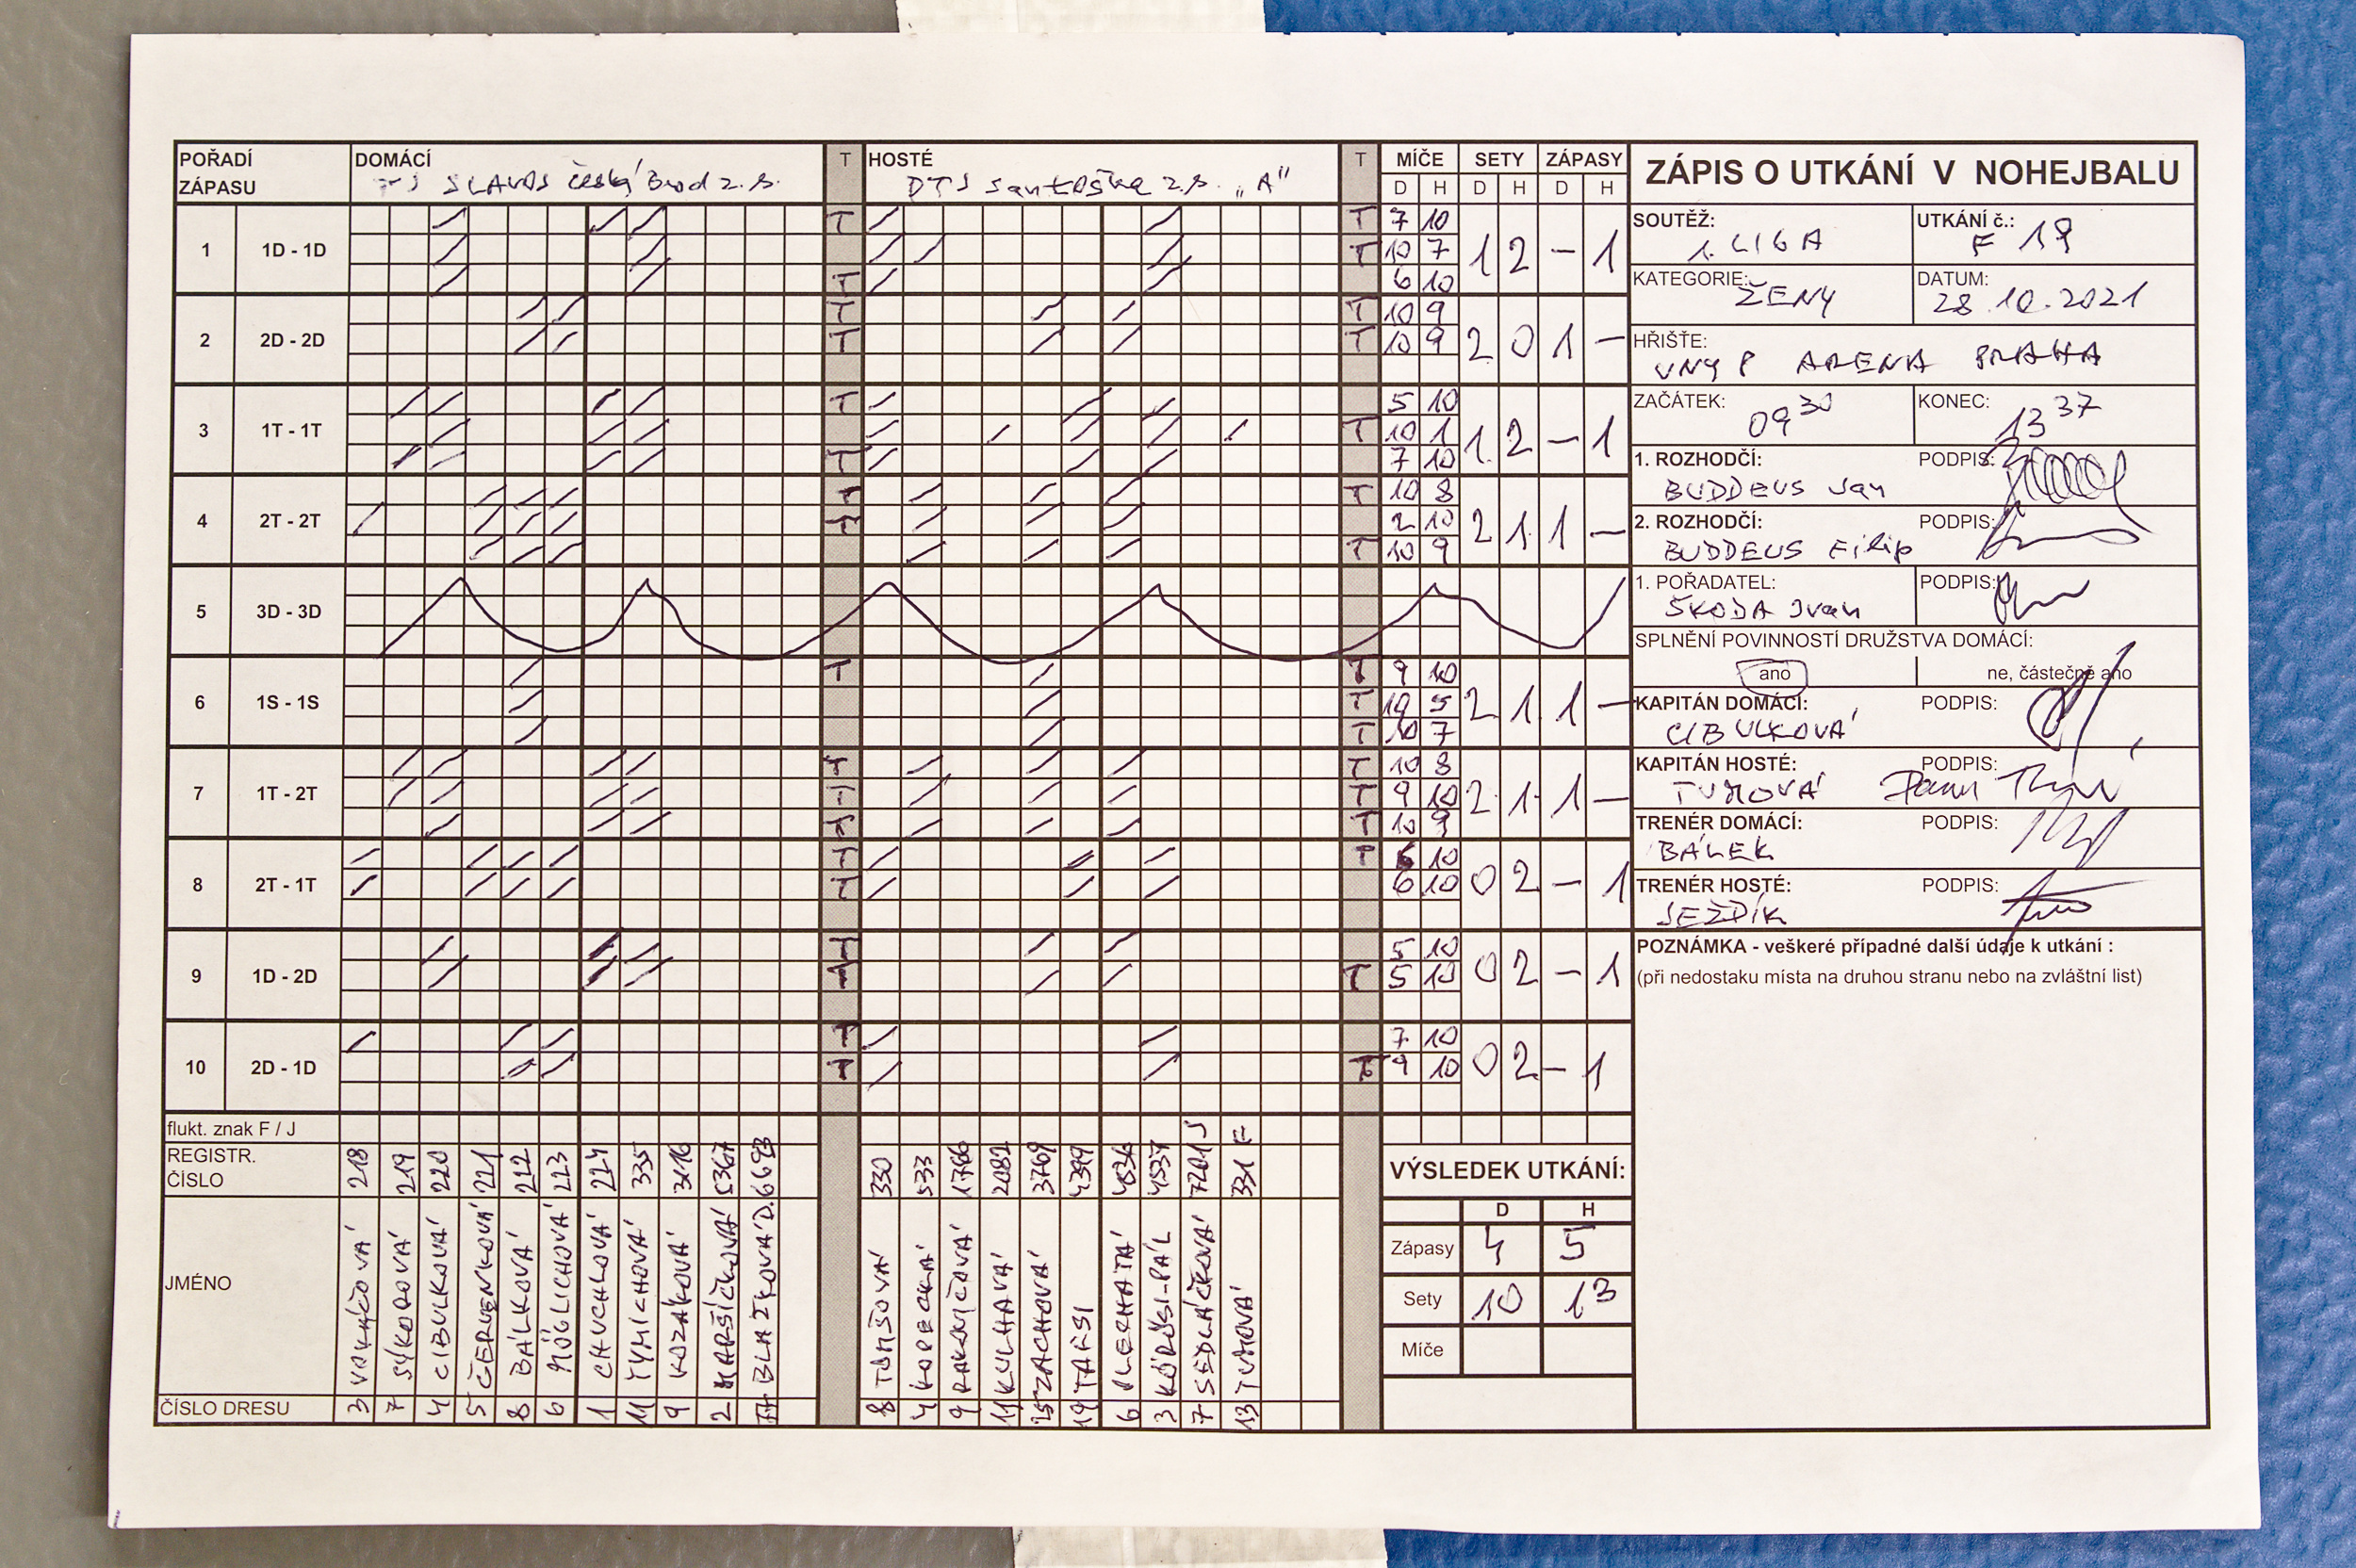 POŘADÍ ZÁPASU DOMÁCÍ T HOSTÉ T MÍČE SETY ZÁPASY
TJ SLAVOJ Český Brod z.s. DTJ Santoška z.s. "A" D H D H D H
1 1D - 1D T T 7 10 1 2 - 1
T 10 7
T 6 10
2 2D - 2D T T 10 9 2 0 1 -
T T 10 9
3 1T - 1T T 5 10 1 2 - 1
T 10 1
T 7 10
4 2T - 2T T T 10 8 2 1 1 -
T 2 10
T 10 9
5 3D - 3D
6 1S - 1S T T 9 10 2 1 1 -
T 10 5
T 10 7
7 1T - 2T T T 10 8 2 1 1 -
T T 9 10
T T 10 9
8 2T - 1T T T 6 10 0 2 - 1
T 6 10
9 1D - 2D T 5 10 0 2 - 1
T T 5 10
10 2D - 1D T 7 10 0 2 - 1
T T 9 10
flukt. znak F / J J F
REGISTR. ČÍSLO 218 219 220 221 222 223 224 335 3416 5367 6693 330 533 1766 2082 3769 4399 4536 4537 7201 331
JMÉNO SÝKOROVÁ CIBULKOVÁ ČERVENKOVÁ BÁLKOVÁ MÖGLICHOVÁ CHUCHLOVÁ TYMICHOVÁ KOZÁKOVÁ MARŠÍČKOVÁ BLAŽKOVÁ D. TOMŠOVÁ KOPECKÁ KULHAVÁ ZACHOVÁ TAFSI PLECHATÁ KÖRÖSI-PÁL SEDLÁČKOVÁ TUMOVÁ
ČÍSLO DRESU 3 7 4 5 8 6 1 11 9 2 8 4 9 11 15 19 6 3 7 13
VÝSLEDEK UTKÁNÍ:
D H
Zápasy 4 5
Sety 10 13
Míče
ZÁPIS O UTKÁNÍ V NOHEJBALU
SOUTĚŽ: 1. LIGA UTKÁNÍ č.: F 19
KATEGORIE: ŽENY DATUM: 28.10.2021
HŘIŠTĚ: UNYP ARENA PRAHA
ZAČÁTEK: 09 30 KONEC: 13 37
1. ROZHODČÍ: PODPIS:
BUDDEUS Jan
2. ROZHODČÍ: PODPIS:
BUDDEUS Filip
1. POŘADATEL: PODPIS:
ŠKODA Ivan
SPLNĚNÍ POVINNOSTÍ DRUŽSTVA DOMÁCÍ:
ano ne, částečně ano
KAPITÁN DOMÁCÍ: PODPIS:
CIBULKOVÁ
KAPITÁN HOSTÉ: PODPIS:
TUMOVÁ
TRENÉR DOMÁCÍ: PODPIS:
BÁLEK
TRENÉR HOSTÉ: PODPIS:
JEŽDÍK
POZNÁMKA - veškeré případné další údaje k utkání :
(při nedostaku místa na druhou stranu nebo na zvláštní list)